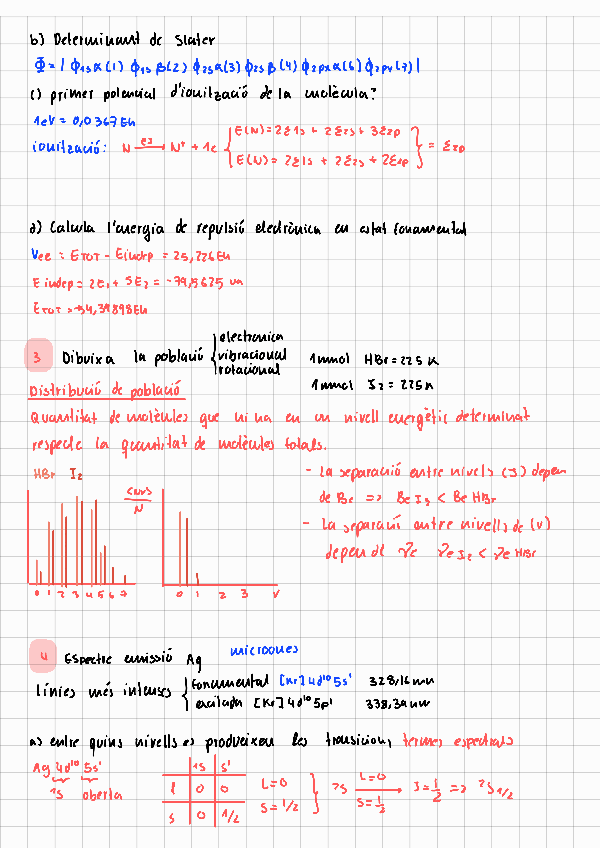 b) Determinant de Slater
Φ = | ϕ1sα(1) ϕ1sβ(2) ϕ2sα(3) ϕ2sβ(4) ϕ2pxα(6) ϕ2pv(7) |
c) primer potencial d'ionització de la molècula?
1eV = 0,0367Eh
ionització: N → N+ + 1e { E(N)=2ε1s + 2ε2s + 3ε2p
E(N)= 2ε1s + 2ε2s + 2ε2p } = ε2p
d) Calcula l'energia de repulsió electrònica en estat fonamental
Vee = ETOT - Eindep = 25,226Eh
E indep = 2E1 + 5E2 = -79,5625 ua
ETOT = -54,39898Eh
3 Dibuixa la població { electronica
vibracional
rotacional
1mmol HBr = 225 K
1mmol I2 = 225K
Distribució de població
Quantitat de molècules que hi ha en un nivell energètic determinat
respecte la quantitat de molècules totals.
HBr I2
N
0 1 2 3 4 5 6 7
0 1 2 3 V
- La separació entre nivells (J) depen
de Be => Be I2 < Be HBr
- La separació entre nivells de (v)
depen de ν̃e ν̃e I2 < ν̃e HBr
4 Espectre emissió Ag microones
línies més intenses { fonamental [Kr]4d10 5s1 328,16nm
excitada [Kr]4d10 5p1 338,39nm
a) entre quins nivells es produeixen les transicions, termes espectrals
Ag 4d10 5s1
1S oberta
1S S1
l 0 0
s 0 1/2
L=0
S=1/2
} 2S L=0 S=1/2 → J=1/2 => 2S1/2